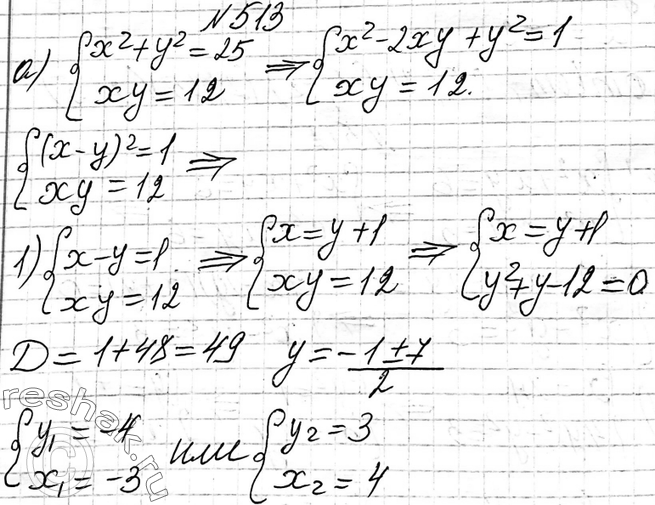 №513
а) {x²+y²=25 ⇒ {x²-2xy+y²=1
xy=12 xy=12.
{(x-y)²=1 ⇒
xy=12
1) {x-y=1 ⇒ {x=y+1 ⇒ {x=y+1
xy=12 xy=12 y²+y-12=0
D=1+48=49 y=-1±7/2
{y₁=-4 или {y₂=3
x₁=-3 x₂=4
reshak.ru